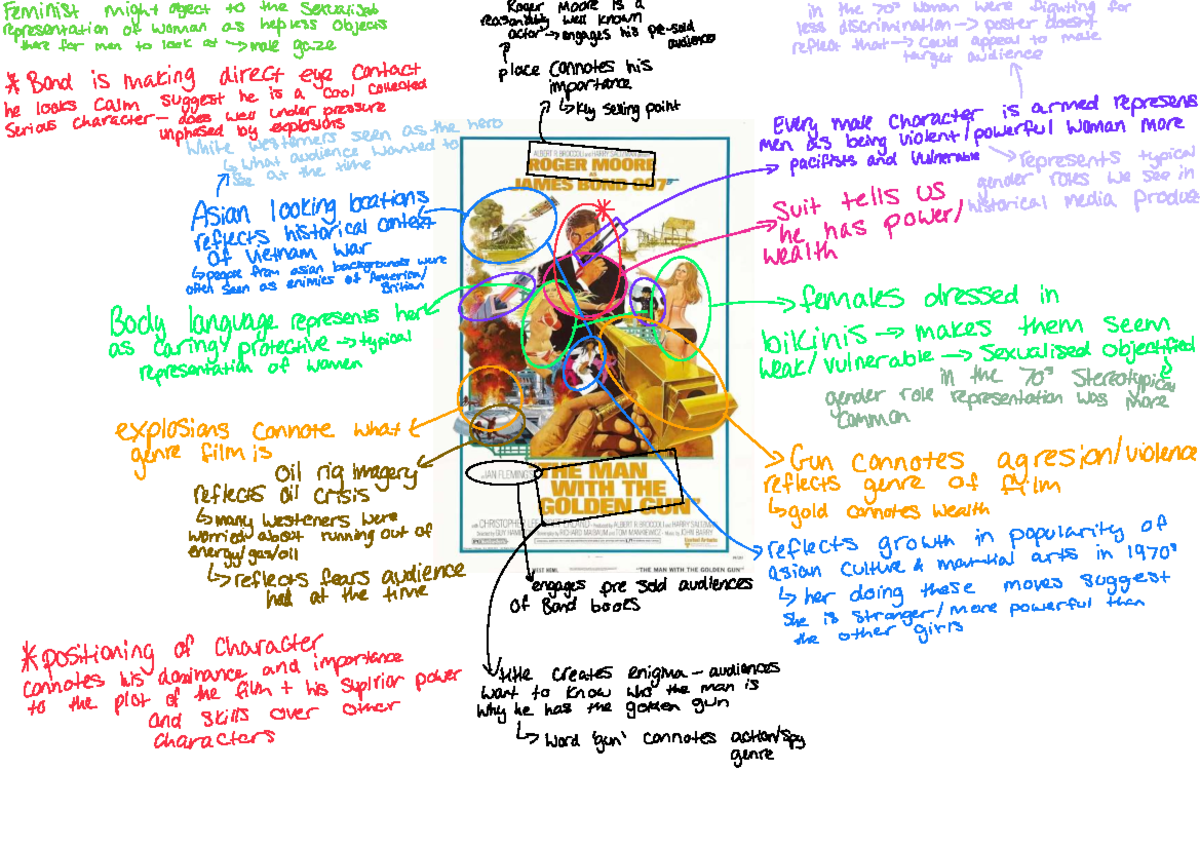 Feminist might object to the sexualised
representation of woman as helpless objects
there for men to look at → male gaze
* Bond is making direct eye contact
he looks calm suggest he is a cool collected
serious character - does well under pressure
unphased by explosions
White westerners seen as the hero
↳ what audience wanted to
see at the time
Asian looking locations
reflects historical context
of Vietnam war
↳ people from asian backgrounds were
often seen as enimies of America/
Britian
Body language represents her
as caring protective → typical
representation of women
explosians connote what
genre film is
oil rig imagery
reflects oil crisis
↳ many westeners were
worried about running out of
energy/gas/oil
↳ reflects fears audience
had at the time
* positioning of character
connotes his dominance and importance
to the plot of the film + his suplrior power
and skills over other
characters
Roger Moore is a
reasonably well known
actor → engages his pre-sold
audiences
place connotes his
importance
↳ key selling point
ALBERT R. BROCCOLI and HARRY SALTZMAN
ROGER MOORE
as
JAMES BOND 007
IAN FLEMING'S
THE MAN
WITH THE
GOLDEN GUN"
with CHRISTOPHER LEE
Produced by ALBERT R. BROCCOLI and HARRY SALTZMAN
Directed by GUY HAM
Screenplay by RICHARD MAIBAUM and TOM MANKIEWICZ Music by JOHN BARRY
United Artists
"THE MAN WITH THE GOLDEN GUN"
engages pre sold audiences
of Bond books
title creates enigma - audiences
want to know who the man is
why he has the golden gun
↳ word 'gun' connotes action/spy
genre
in the 70s woman were fighting for
less discrimination → poster doesnt
reflect that → could appeal to male
target audience
Every male character is armed represens
men as being violent/powerful woman more
pacifists and vulnerable
represents typical
gender roles we see in
historical media produse
Suit tells us
he has power/
wealth
females dressed in
bikinis → makes them seem
weak/vulnerable → Sexualised objectified
in the 70s Stereotypical
gender role representation was more
common
Gun connotes agresion/violence
reflects genre of film
↳ gold connotes wealth
reflects growth in popularity of
asian culture & martial arts in 1970s
↳ her doing these moves suggest
she is stronger/more powerful than
the other girls